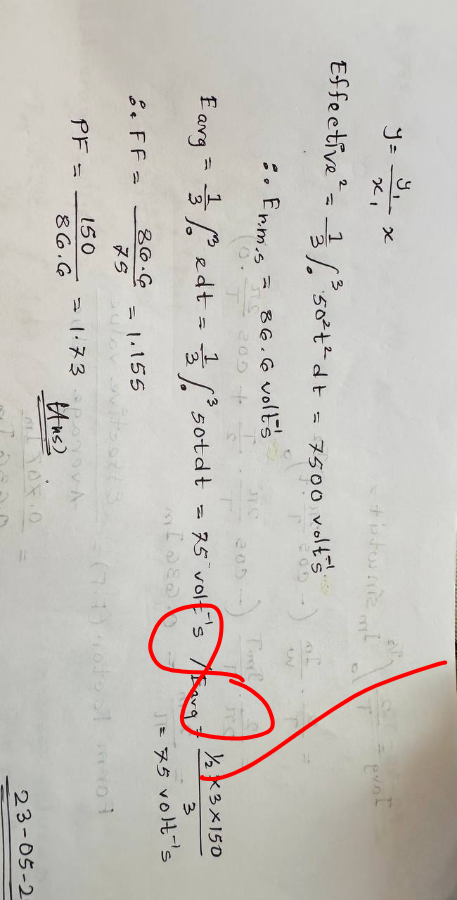 y = y₁/x₁ x
Effective² = 1/3 ∫₀³ 50²t² dt = 7500 volt⁻¹s
∴ Er.m.s = 86.6 volt⁻¹s
Eavg = 1/3 ∫₀³ edt = 1/3 ∫₀³ 50tdt = 75 volt⁻¹s / Eavg = ½×3×150/3
= 75 volt⁻¹s
∴ FF = 86.6/75 = 1.155
PF = 150/86.6 = 1.73
(Ans)
23-05-2